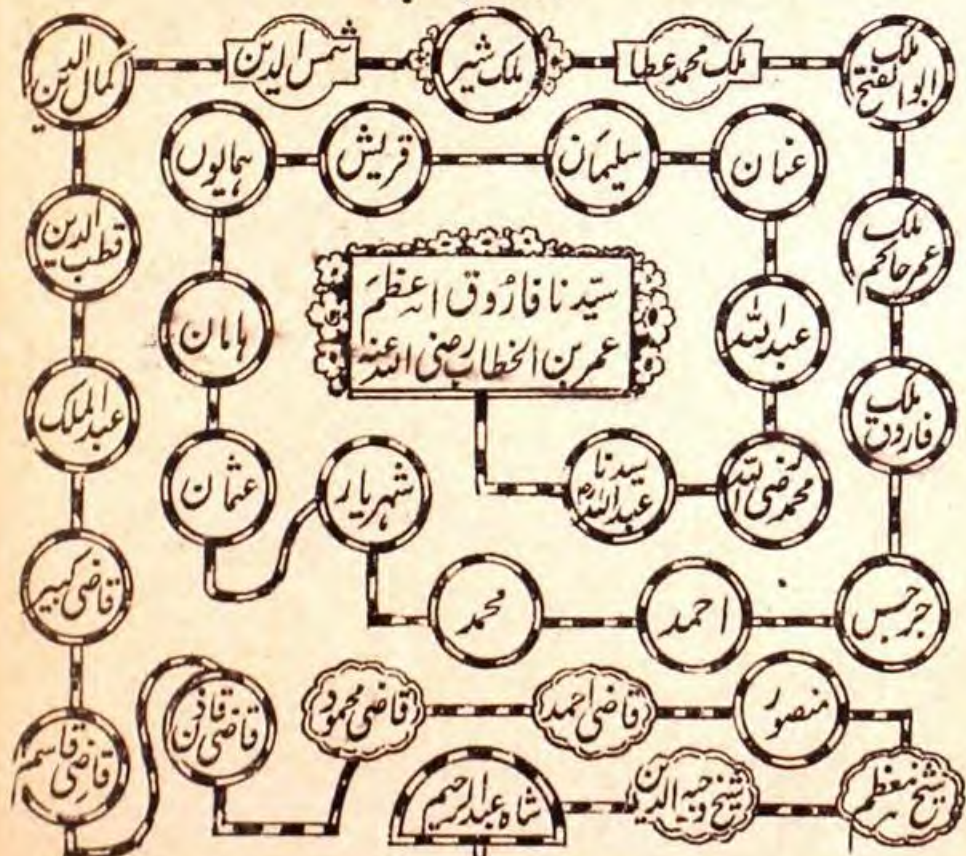 ملک
ابوالفتح
ملک محمد عطا
ملک شیر
شمس الدین
کمال الدین
عنان
سلیمان
قریش
ہمایوں
ملک
عمر حاکم
قطب الدین
سیّدنا فارُوق اعظم
عمر بن الخطاب رضی اللہ عنہ
عبداللہ
ہامان
ملک
فاروق
عبدالملک
محمد رضی اللہ
سیدنا
عبداللہ
شہریار
عثمان
قاضی کبیر
جرجس
احمد
محمد
منصور
قاضی احمد
قاضی محمود
قاضی قاذن
قاضی قاسم
شیخ معظم
شیخ وجیہ الدین
شاہ عبدالرحیم